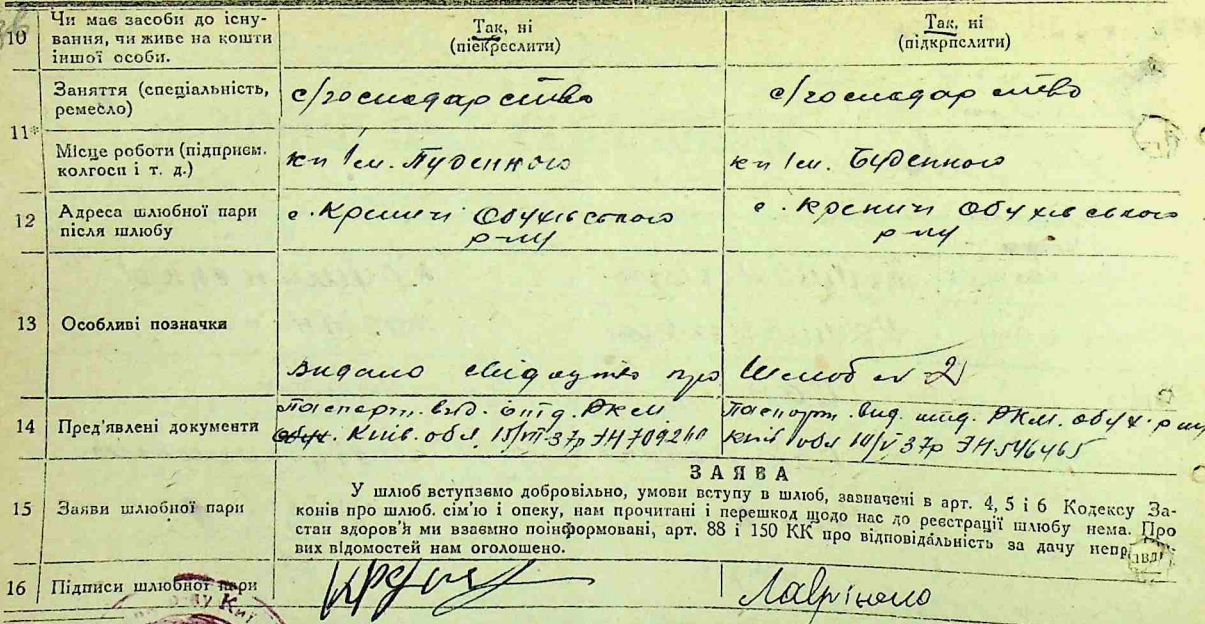 10 Чи має засоби до існу-
вання, чи живе на кошти
іншої особи.
Так, ні
(підкреслити)
Так, ні
(підкрпслити)
11*
Заняття (спеціальність,
ремесло)
с/господарство
с/господарство
Місце роботи (підприєм.
колгосп і т. д.)
кп ім. Буденного
кп ім. Буденного
12 Адреса шлюбної пари
після шлюбу
с. Креничі Обухівського
р-ну
с. Креничі Обухівського
р-ну
13 Особливі позначки
Видано свідоцтво про Шлюб № 2
14 Пред'явлені документи
Паспорт. вид. отд. РКМ
Київ. обл. 15/VI-37р ЭН 709260
Паспорт. вид. отд. РКМ. Обух. р-ну
Київ обл 10/V 37р ЭН.546465
15 Заяви шлюбної пари
ЗАЯВА
У шлюб вступаємо добровільно, умови вступу в шлюб, зазначені в арт. 4, 5 і 6 Кодексу За-
конів про шлюб. сім'ю і опеку, нам прочитані і перешкод щодо нас до реєстрації шлюбу нема. Про
стан здоров'я ми взаємно поінформовані, арт. 88 і 150 КК про відповідальність за дачу непр
вих відомостей нам оголошено.
16 Підписи шлюбної пари
Лаврінено